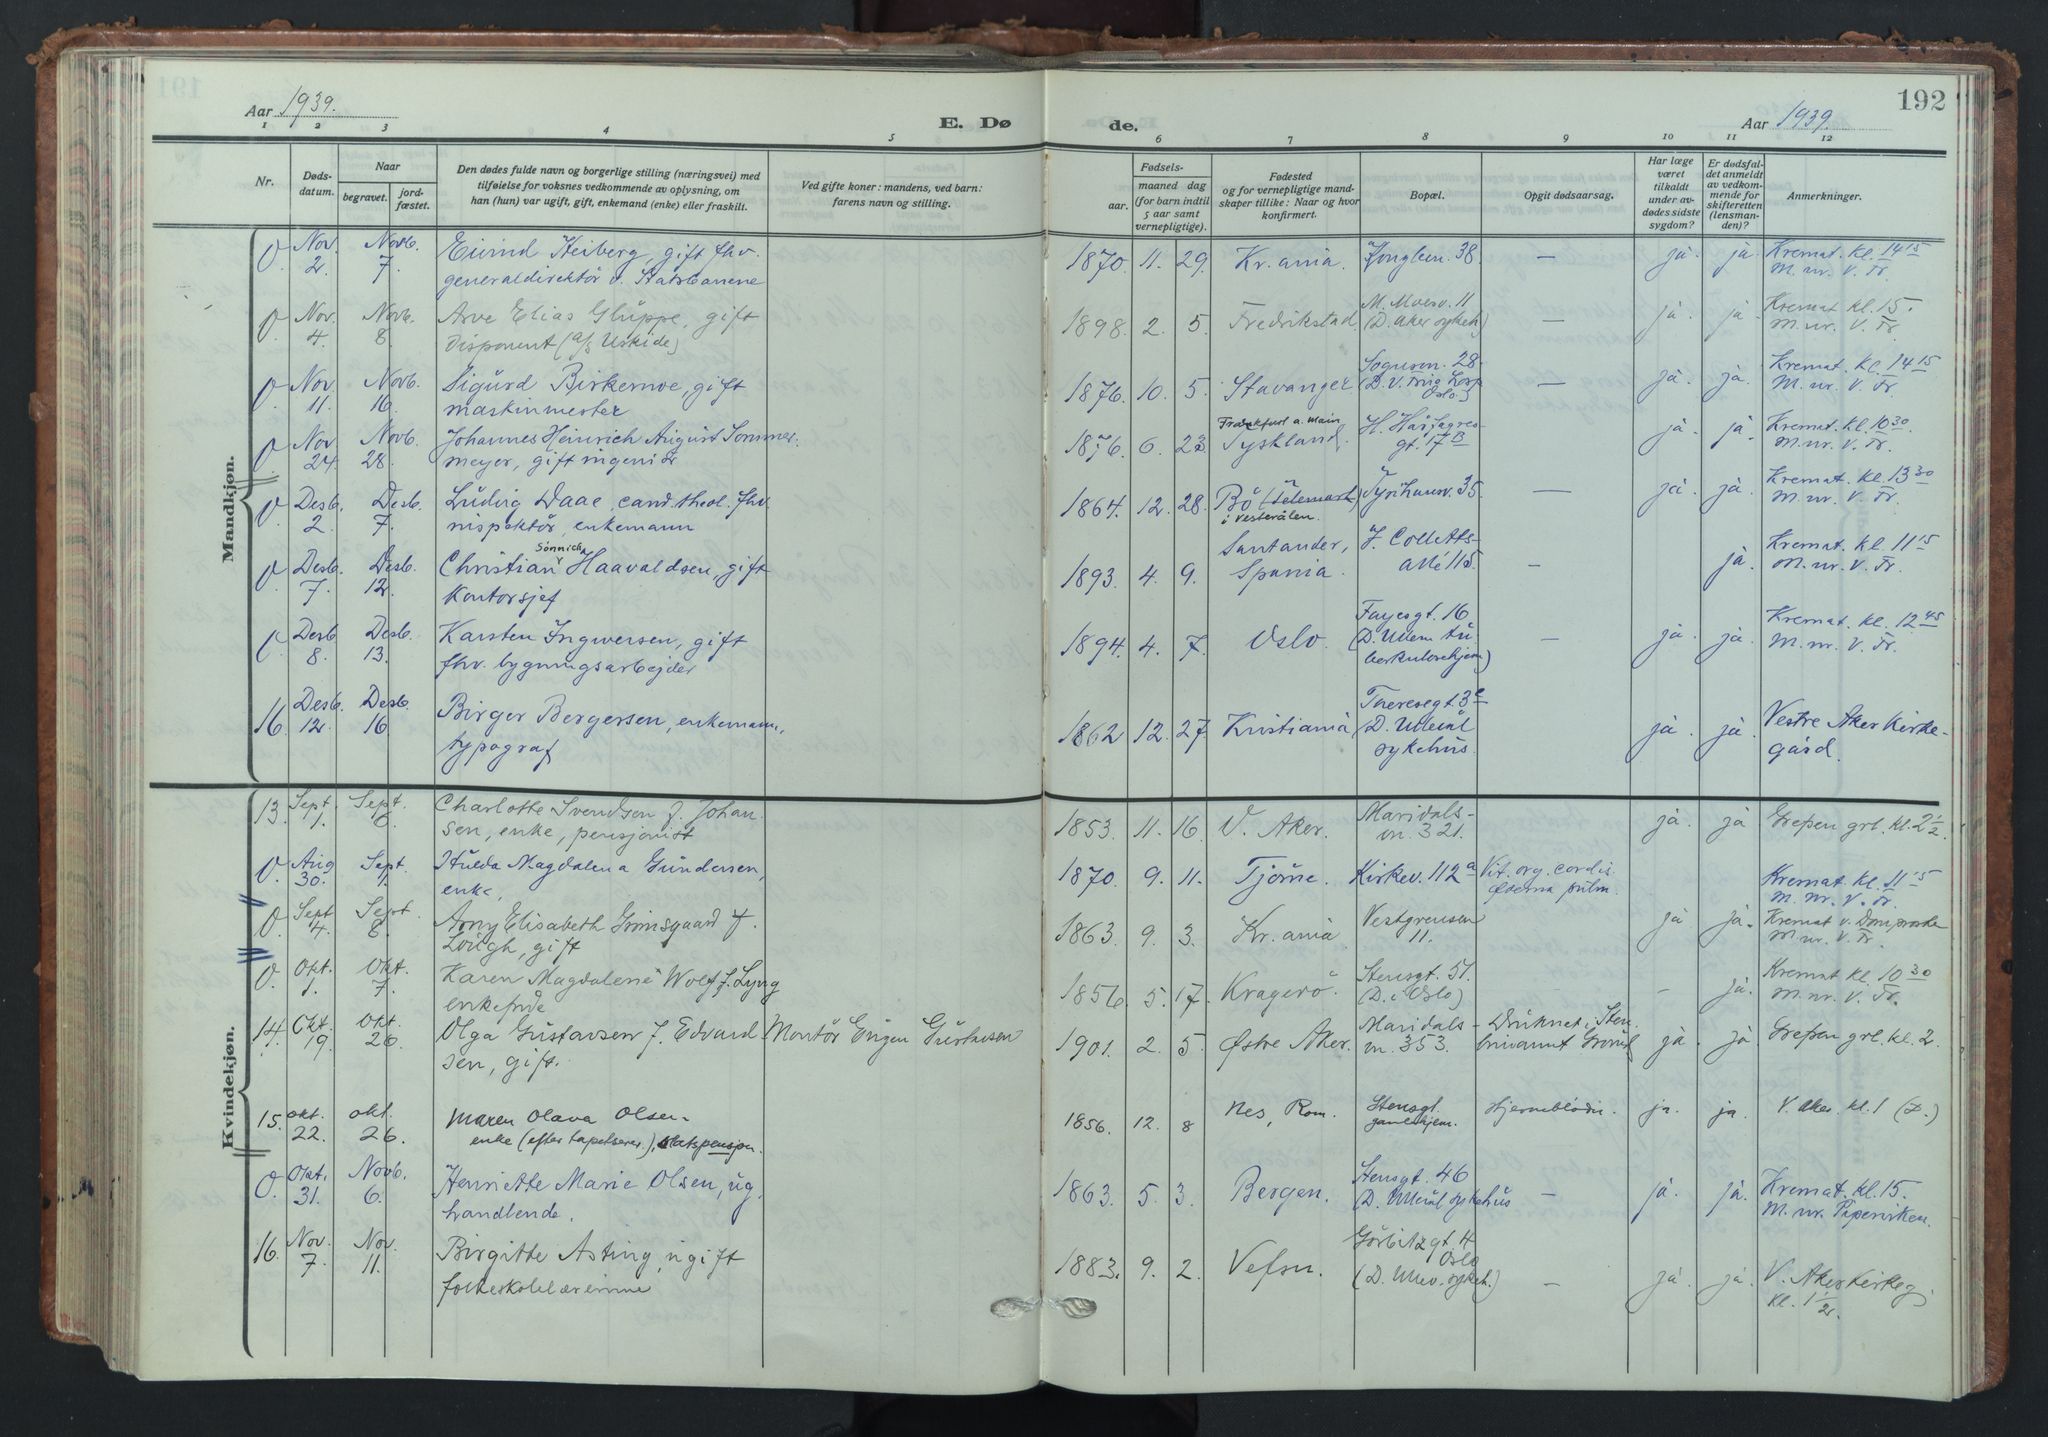 192
Aar 1939.
E. Døde.
Aar 1939.
1 2 3 4 5 6 7 8 9 10 11 12
Nr.
Døds-
datum.
Naar
begravet.
jord-
fæstet.
Den dødes fulde navn og borgerlige stilling (næringsvei) med
tilføielse for voksnes vedkommende av oplysning, om
han (hun) var ugift, gift, enkemand (enke) eller fraskilt.
Ved gifte koner: mandens, ved barn:
farens navn og stilling.
Fødsels-
aar.
maaned dag
(for barn indtil
5 aar samt
vernepligtige).
Fødested
og for vernepligtige mand-
skaper tillike: Naar og hvor
konfirmert.
Bopæl.
Opgit dødsaarsag.
Har læge
været
tilkaldt
under av-
dødes sidste
sygdom?
Er dødsfal-
det anmeldt
av vedkom-
mende for
skifteretten
(lensman-
den)?
Anmerkninger.
Mandkjøn.
0 Nov. 2 Novb. 7 Eivind Heiberg, gift fhv.
generaldirektör v. Statsbanene
1870. 11. 29. Kr.ania. Kongleen. 38. — ja. ja. Kremat. Kl. 14 15
M. nr. V. Fr.
0 Nov. 4. Novb. 8. Arve Elias Gluppe, gift
Disponent (a/s Uskide)
1898. 2. 5. Fredrikstad. M. Moesv. 11
(D. Aker sykeh.) — ja. ja. Kremat kl. 15.
M. nr. V. Fr.
0 Nov. 11. Novb. 16. Sigurd Birkemoe, gift
maskinmester
1876. 10. 5. Stavanger. Sognsvn. 28.
— ja. ja. Kremat. Kl. 14 15
M. nr. V. Fr.
0 Nov. 24. Novb. 28. Johannes Heinrich August Sommer-
meyer, gift ingeniör
1876. 6. 23. Frankfurt a. Main
Tyskland. H. Hårfagres-
gt. 17 B ja. ja. Kremat. Kl. 10 30.
M. nr. V. Fr.
0 Desb. 2 Desb. 7. Ludvig Daae, cand. theol. fhv.
inspektör, enkemann
1864. 12. 28. Bö (Telemark)
i Vesterålen. Tyrihansv. 35. — ja. ja. Kremat. Kl. 13 30
M. nr. V. Fr.
0 Desb. 7. Desb. 12. Christian Sönnich Haavaldsen, gift
Kontorsjef
1893. 4. 9. Santander,
Spania. J. Colletts-
allé 115. — ja. Kremat. Kl. 11 15
M. nr. V. Fr.
0 Desb 8. Desb. 13. Karsten Ingwersen, gift
fhv. bygningsarbejder
1894. 4. 7. Oslo. Fayesgt. 16
(D. Ullern tu-
berkulosehjem) — ja. ja. Kremat. Kl. 12 45
M. nr. V. Fr.
16. Desb. 12. Desb. 16 Birger Bergersen, enkemann,
typograf
1862 12. 27. Kristiania Theresegt. 3 c
(D. Ullevål
sykehus. ja. ja. Vestre Aker Kirke-
gård.
Kvindekjøn.
13. Sept. 1. Sept. 6. Charlotte Svendsen f. Johan-
sen, enke, pensjonist
1853. 11. 16. V. Aker. Maridals-
vn. 321. ja. ja Grefsen grl. kl. 2 1/2.
0. Aug 30. Sept. 1. Hulda Magdalena Gundersen,
enke,
1870. 9. 11. Tjöme. Kirkev. 112 a Vit. org. cordis.
pulm. Kremat. Kl. 11 15
M. nr. V. Fr.
0 Sept 4. Sept. 8. Amy Elisabeth Grimsgaard f.
Lough, gift
1863. 9. 3. Kr.ania Vestgrensen
11. ja ja. Kremat v. Domproste
M. nr. V. Fr.
0. Okt. 1. Okt. 7. Karen Magdalene Wolf f. Lyng
enkefrue
1856. 5. 17. Kragerö. Stensgt. 51.
(D. i Oslo) – – ja. Kremat Kl. 10 30
M. nr. V. Fr.
14. Okt. 19. Okt. 26. Olga Gustavsen f. Edvard-
sen, gift.
Montör Eugen Gustavsen
1901. 2. 5. Østre Aker. Maridals-
vn. 353. Druknet i
ja. ja Grefsen grl. kl. 2.
15. okt. 22. okt. 26. Maren Olava Olsen.
enke (efter tapetserer), statspensjon.
1856. 12. 8 Nes, Rom. Stensgt.
gamlehjem. Hjerneblödn. ja. ja. V. Aker. kl. 1 (D.)
0. Okt. 31. Novb. 6. Henriette Marie Olsen, ug.
handlende.
1863. 5. 3. Bergen. Stensgt. 46
(D. Ullevål sykehus — ja. ja. Kremat. kl. 15.
M. nr. Piperviken.
16. Nov. 7. Nov. 11. Birgitte Asting, ugift
folkeskolelærerinne
1883. 9. 2. Vefsn. Görbitzgt. 4
Oslo
(D. Ullev. sykeh.) – ja. ja. V. Aker Kirkeg.
kl. 1 1/2.